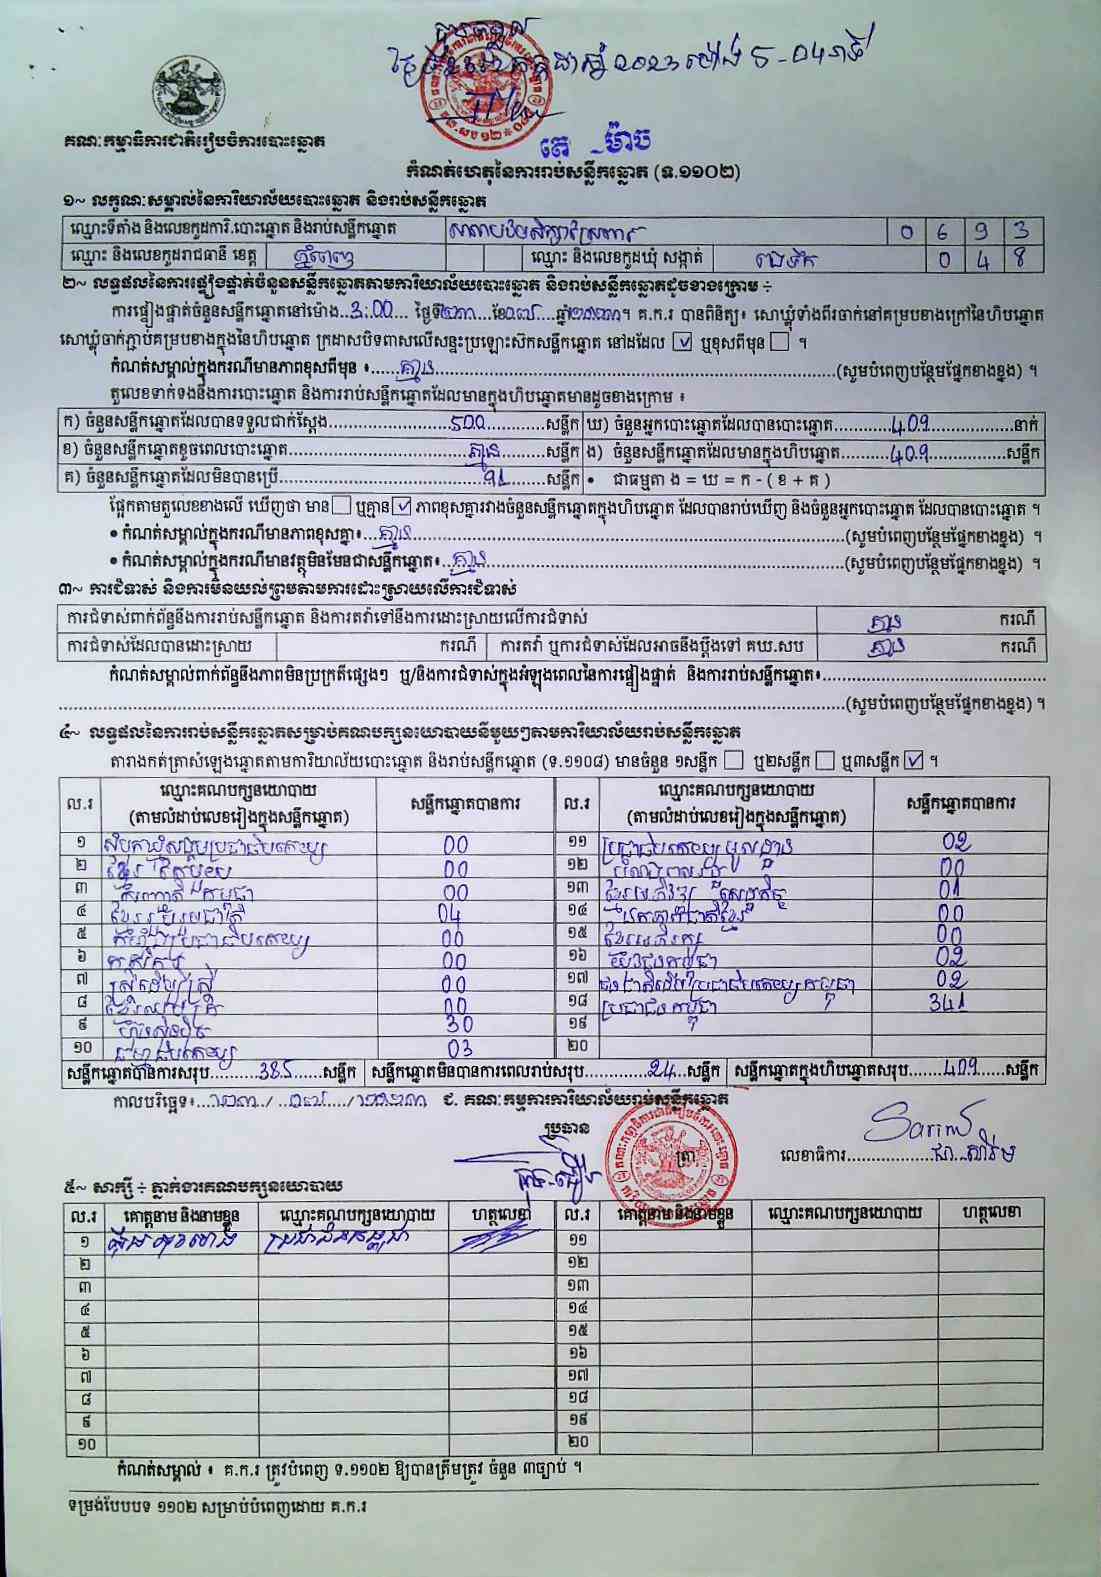 គណៈកម្មាធិការជាតិរៀបចំការបោះឆ្នោត
តេ ម៉ាច
កំណត់ហេតុនៃការរាប់សន្លឹកឆ្នោត (ទ.១១០២)
១~ លក្ខណៈសម្គាល់នៃការិយាល័យបោះឆ្នោត និងរាប់សន្លឹកឆ្នោត
ឈ្មោះទីតាំង និងលេខកូដការិ.បោះឆ្នោត និងរាប់សន្លឹកឆ្នោត 0 6 9 3
ឈ្មោះ និងលេខកូដរាជធានី ខេត្ត ភ្នំពេញ ឈ្មោះ និងលេខកូដឃុំ សង្កាត់ 0 4 8
២~ លទ្ធផលនៃការផ្ទៀងផ្ទាត់ចំនួនសន្លឹកឆ្នោតតាមការិយាល័យបោះឆ្នោត និងរាប់សន្លឹកឆ្នោតដូចខាងក្រោម ÷
ការផ្ទៀងផ្ទាត់ចំនួនសន្លឹកឆ្នោតនៅម៉ោង..3:00... ថ្ងៃទី២៣...ខែ០៧...ឆ្នាំ២០២៣។ គ.ក.រ បានពិនិត្យ៖ សោឃ្លុំទាំងពីរចាក់នៅគម្របខាងក្រៅនៃហិបឆ្នោត
សោឃ្លុំចាក់ភ្ជាប់គម្របខាងក្នុងនៃហិបឆ្នោត ក្រដាសបិទពាសលើសន្ទះប្រឡោះស៊កសន្លឹកឆ្នោត នៅដដែល ☑ ឬខុសពីមុន ☐ ។
កំណត់សម្គាល់ក្នុងករណីមានភាពខុសពីមុន ៖......គ្មាន......(សូមបំពេញបន្ថែមផ្នែកខាងខ្នង) ។
តួលេខទាក់ទងនឹងការបោះឆ្នោត និងការរាប់សន្លឹកឆ្នោតដែលមានក្នុងហិបឆ្នោតមានដូចខាងក្រោម ៖
ក) ចំនួនសន្លឹកឆ្នោតដែលបានទទួលជាក់ស្តែង......500......សន្លឹក ឃ) ចំនួនអ្នកបោះឆ្នោតដែលបានបោះឆ្នោត......409......នាក់
ខ) ចំនួនសន្លឹកឆ្នោតខូចពេលបោះឆ្នោត......គ្មាន......សន្លឹក ង) ចំនួនសន្លឹកឆ្នោតដែលមានក្នុងហិបឆ្នោត......409......សន្លឹក
គ) ចំនួនសន្លឹកឆ្នោតដែលមិនបានប្រើ......91......សន្លឹក • ជាធម្មតា ង = ឃ = ក - ( ខ + គ )
ផ្អែកតាមតួលេខខាងលើ ឃើញថា មាន ☐ ឬគ្មាន ☑ ភាពខុសគ្នារវាងចំនួនសន្លឹកឆ្នោតក្នុងហិបឆ្នោត ដែលបានរាប់ឃើញ និងចំនួនអ្នកបោះឆ្នោត ដែលបានបោះឆ្នោត ។
• កំណត់សម្គាល់ក្នុងករណីមានភាពខុសគ្នា៖...គ្មាន......(សូមបំពេញបន្ថែមផ្នែកខាងខ្នង) ។
• កំណត់សម្គាល់ក្នុងករណីមានវត្ថុមិនមែនជាសន្លឹកឆ្នោត៖...គ្មាន......(សូមបំពេញបន្ថែមផ្នែកខាងខ្នង) ។
៣~ ការជំទាស់ និងការមិនយល់ព្រមតាមការដោះស្រាយលើការជំទាស់
ការជំទាស់ពាក់ព័ន្ធនឹងការរាប់សន្លឹកឆ្នោត និងការតវ៉ាទៅនឹងការដោះស្រាយលើការជំទាស់ គ្មាន ករណី
ការជំទាស់ដែលបានដោះស្រាយ ករណី ការតវ៉ា ឬការជំទាស់ដែលអាចនឹងប្តឹងទៅ គឃ.សប គ្មាន ករណី
កំណត់សម្គាល់ពាក់ព័ន្ធនឹងភាពមិនប្រក្រតីផ្សេងៗ ឬ/និងការជំទាស់ក្នុងអំឡុងពេលនៃការផ្ទៀងផ្ទាត់ និងការរាប់សន្លឹកឆ្នោត៖......
......(សូមបំពេញបន្ថែមផ្នែកខាងខ្នង) ។
៤~ លទ្ធផលនៃការរាប់សន្លឹកឆ្នោតសម្រាប់គណបក្សនយោបាយនីមួយៗតាមការិយាល័យរាប់សន្លឹកឆ្នោត
តារាងកត់ត្រាសំឡេងឆ្នោតតាមការិយាល័យបោះឆ្នោត និងរាប់សន្លឹកឆ្នោត (ទ.១១០៨) មានចំនួន ១សន្លឹក ☐ ឬ២សន្លឹក ☐ ឬ៣សន្លឹក ☑ ។
ល.រ ឈ្មោះគណបក្សនយោបាយ (តាមលំដាប់លេខរៀងក្នុងសន្លឹកឆ្នោត) សន្លឹកឆ្នោតបានការ ល.រ ឈ្មោះគណបក្សនយោបាយ (តាមលំដាប់លេខរៀងក្នុងសន្លឹកឆ្នោត) សន្លឹកឆ្នោតបានការ
១ សំបុកឃ្មុំសង្គមប្រជាធិបតេយ្យ 00 ១១ ប្រជាធិបតេយ្យមូលដ្ឋាន 02
២ ខ្មែរតែមួយ 00 ១២ 00
៣ កម្ពុជា 00 ១៣ 01
៤ ខ្មែររួបរួមជាតិ 04 ១៤ ឯកភាពជាតិខ្មែរ 00
៥ កម្លាំងប្រជាធិបតេយ្យ 00 ១៥ ខ្មែរអភិរក្ស 00
៦ កសិករ 00 ១៦ យុវជនកម្ពុជា 02
៧ ស្ត្រីដើម្បីស្ត្រី 00 ១៧ ជនជាតិដើមប្រជាធិបតេយ្យកម្ពុជា 02
៨ 00 ១៨ ប្រជាជនកម្ពុជា 341
៩ ហ៊្វុនស៊ិនប៉ិច 30 ១៩
១០ ធម្មាធិបតេយ្យ 03 ២០
សន្លឹកឆ្នោតបានការសរុប......385......សន្លឹក សន្លឹកឆ្នោតមិនបានការពេលរាប់សរុប......24...សន្លឹក សន្លឹកឆ្នោតក្នុងហិបឆ្នោតសរុប......409......សន្លឹក
កាលបរិច្ឆេទ៖...២៣../...០៧.../២០២៣ ជ. គណៈកម្មការការិយាល័យរាប់សន្លឹកឆ្នោត
ប្រធាន
ត្រា
លេខាធិការ......
៥~ សាក្សី ÷ ភ្នាក់ងារគណបក្សនយោបាយ
ល.រ គោត្តនាម និងនាមខ្លួន ឈ្មោះគណបក្សនយោបាយ ហត្ថលេខា ល.រ គោត្តនាម និងនាមខ្លួន ឈ្មោះគណបក្សនយោបាយ ហត្ថលេខា
១ ប្រជាជនកម្ពុជា ១១
២ ១២
៣ ១៣
៤ ១៤
៥ ១៥
៦ ១៦
៧ ១៧
៨ ១៨
៩ ១៩
១០ ២០
កំណត់សម្គាល់ ៖ គ.ក.រ ត្រូវបំពេញ ទ.១១០២ ឱ្យបានត្រឹមត្រូវ ចំនួន ៣ច្បាប់ ។
ទម្រង់បែបបទ ១១០២ សម្រាប់បំពេញដោយ គ.ក.រ